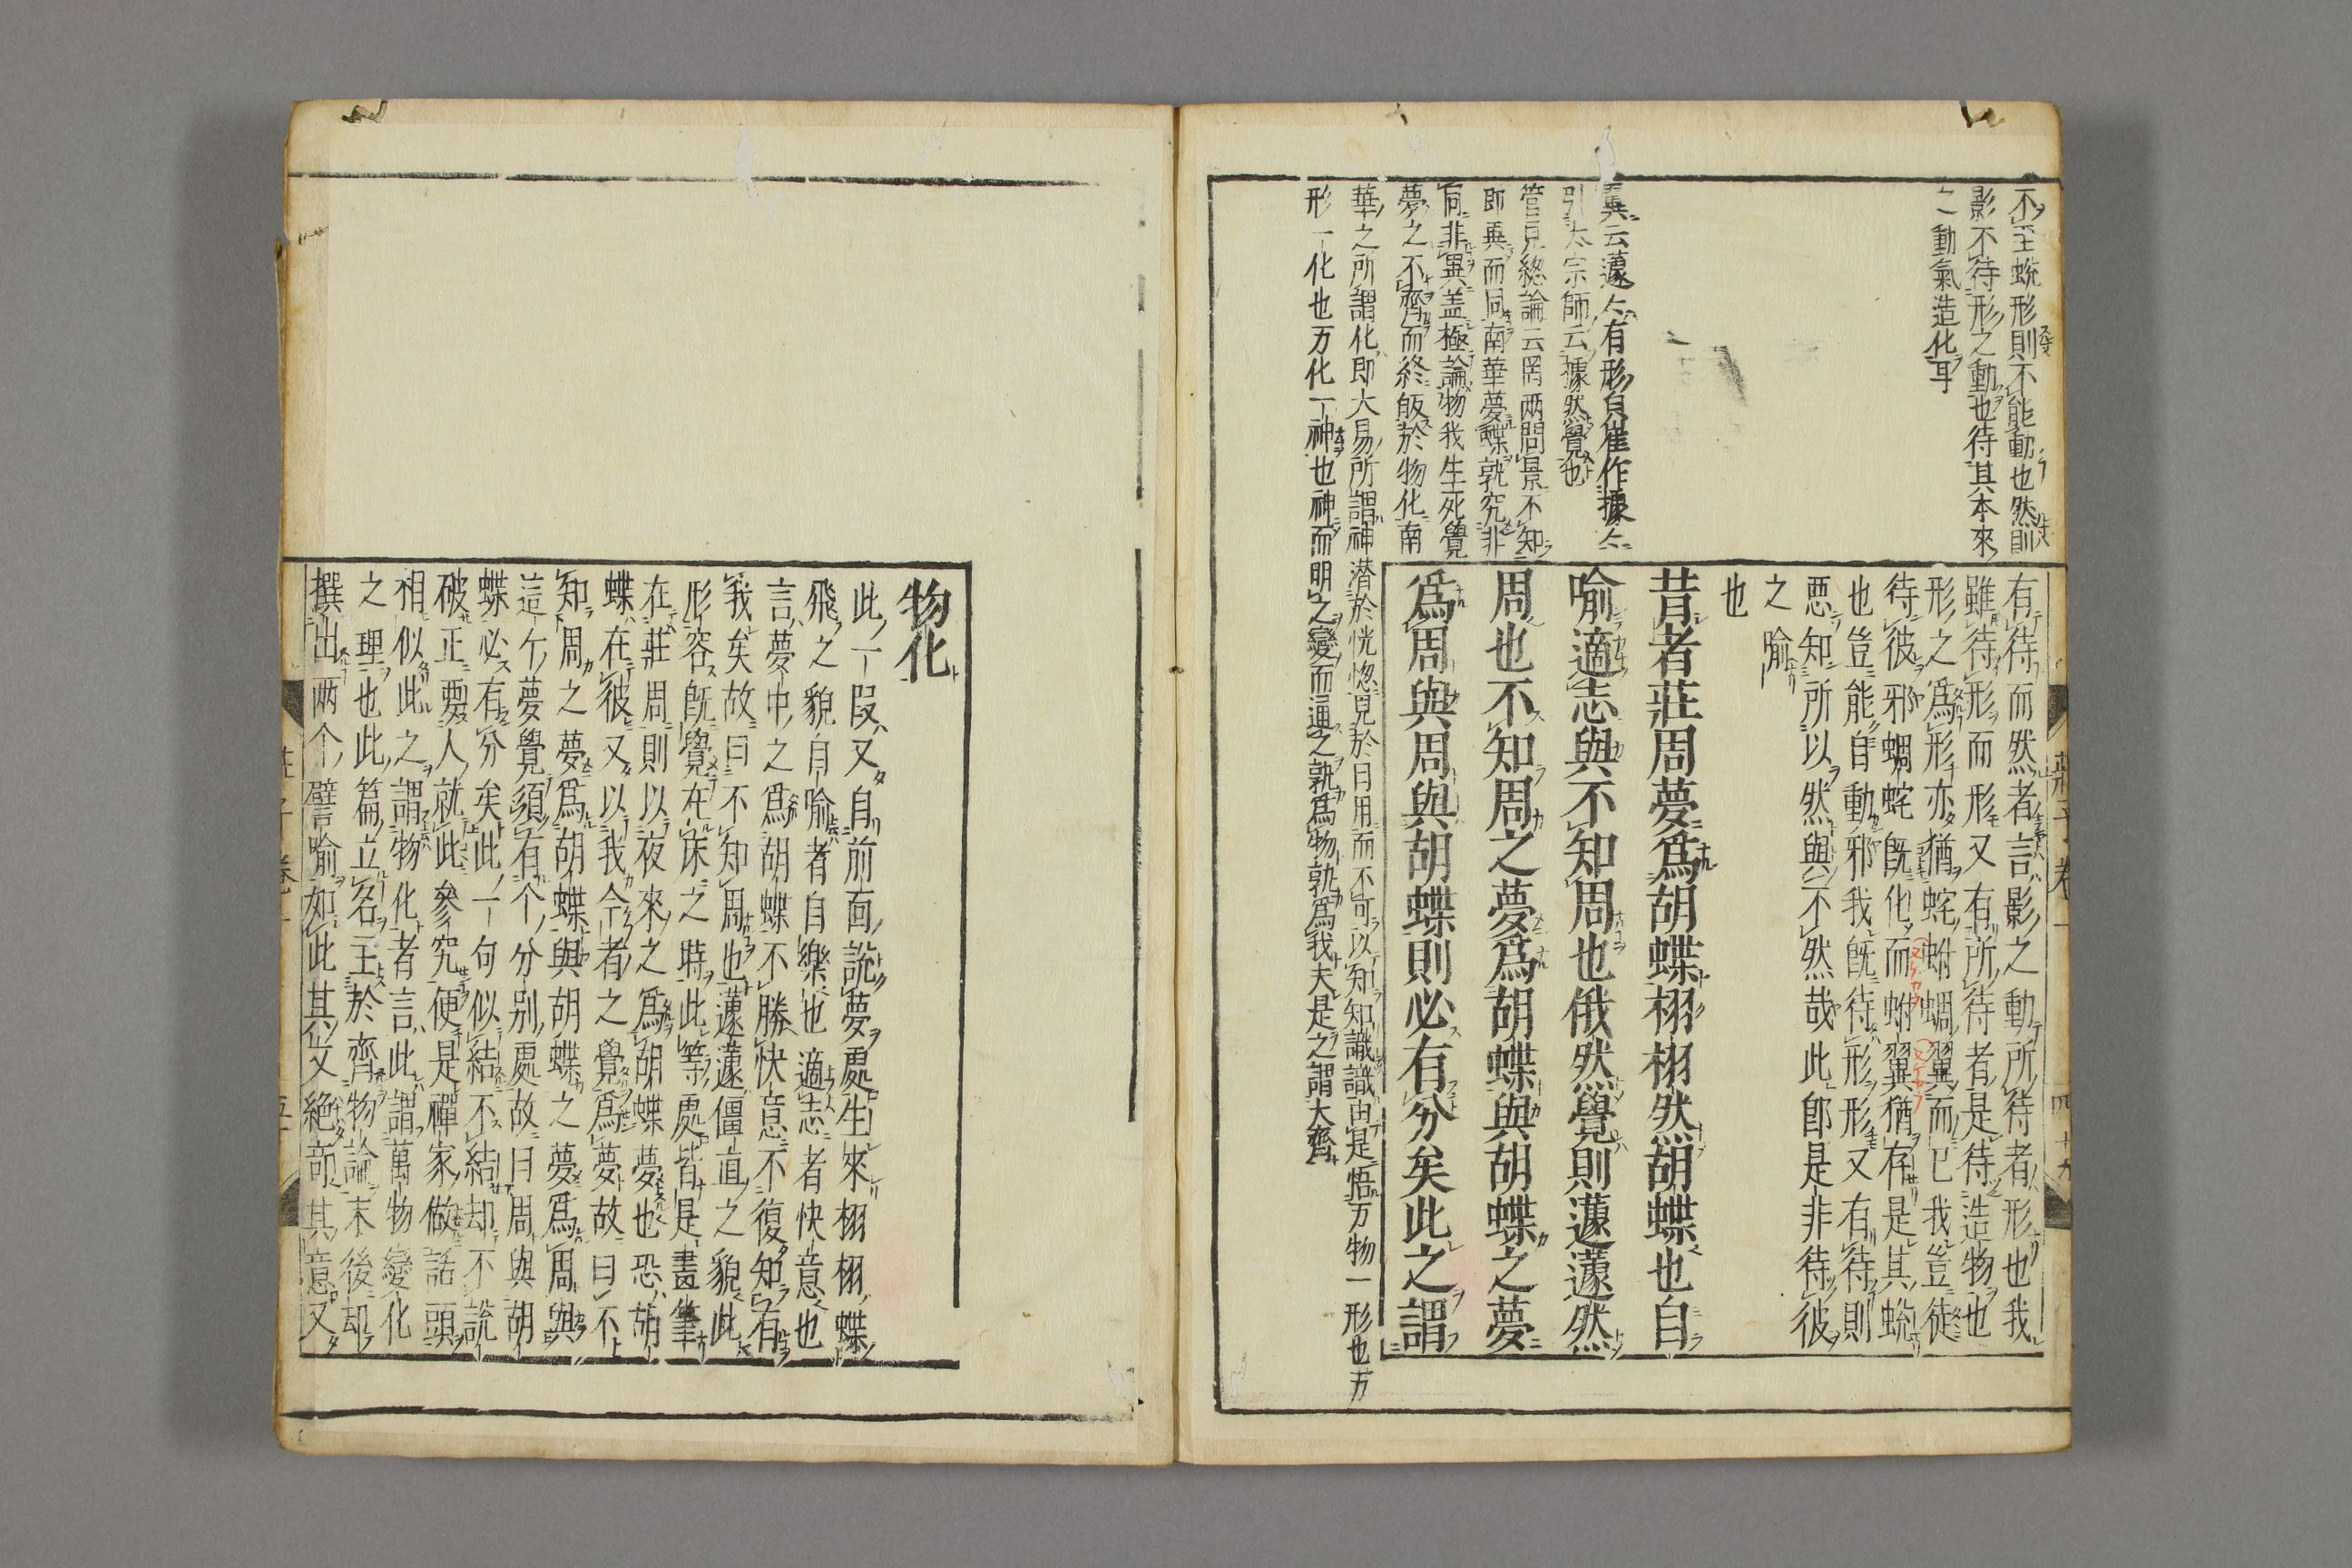 不至蛻形則不能動也然則
影不待形之動也待其本來
之動氣造化耳
翼云蘧々有形貝崔作據々
引太宗師云據然覺也
管見總論云罔两問景不知
即異而同南華夢蝶孰究非
同非異盖極論物我生死覺
夢之不齊而終皈於物化南
華之所謂化即大易所謂神潜於恍惚見於日用而不可以知知識識由是悟万物一形也万
形一化也万化一神也神而明之變而通之孰為物孰為我夫是之謂大齊
有待而然者言影之動所待者形也我
雖待形而形又有所待者是待造物也
形之為形亦猶蛇蚹蜩翼而已我豈徒
待彼邪蜩蛇既化而蚹翼猶存是其蛻
也豈能自動邪我既待形形又有待則
惡知所以然與不然哉此郎是非待彼
之喻
也
昔者莊周夢爲胡蝶栩栩然胡蝶也自
喻適志與不知周也俄然覺則蘧蘧然
周也不知周之夢爲胡蝶與胡蝶之夢
爲周與周與胡蝶則必有分矣此之謂
莊子卷一
四十九
物化
此一段又自前面說夢處生來栩栩蝶
飛之貌自喻者自樂也適志者快意也
言夢中之爲胡蝶不勝快意不復知有
我矣故曰不知周也蘧蘧僵直之貌此
形容既覺在床之時此等處皆是畫筆
在莊周則以夜來之爲胡蝶夢也恐胡
蝶在彼又以我今者之覺爲夢故曰不
知周之夢爲胡蝶與胡蝶之夢爲周與
這个夢覺須有个分別處故曰周與胡
蝶必有分矣此一句似結不結却不說
破正要人就此參究便是禪家做話頭
相似此之謂物化者言此謂萬物變化
之理也此篇立名主於齊物論末後却
撰出两个譬喻如此其文絶竒其意又